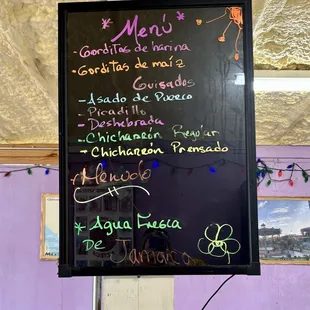 * Menú *
- Gorditas de harina
- Gorditas de maíz
Guisados
- Asado de Puerco
- Picadillo
- Deshebrada
- Chicharrón Regular
- Chicharrón Prensado
- Menudo
* Agua Fresca
De Jamaica